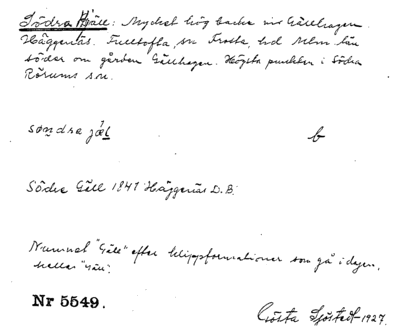 Södra Gäll: Mycket hög backe vid Gällhagen.
Häggenäs. Fulltofta sn Frosta hd Mlm län
söder om gården Gällhagen. Högsta punkten i Södra
Rörums sn.
b
Södra Gäll 1841 Häggenäs D.B.
Namnet "Gäll" efter klippformationer som gå i dagen,
kallas "Gäll".
Nr 5549.
Gösta Sjöstedt-1927.